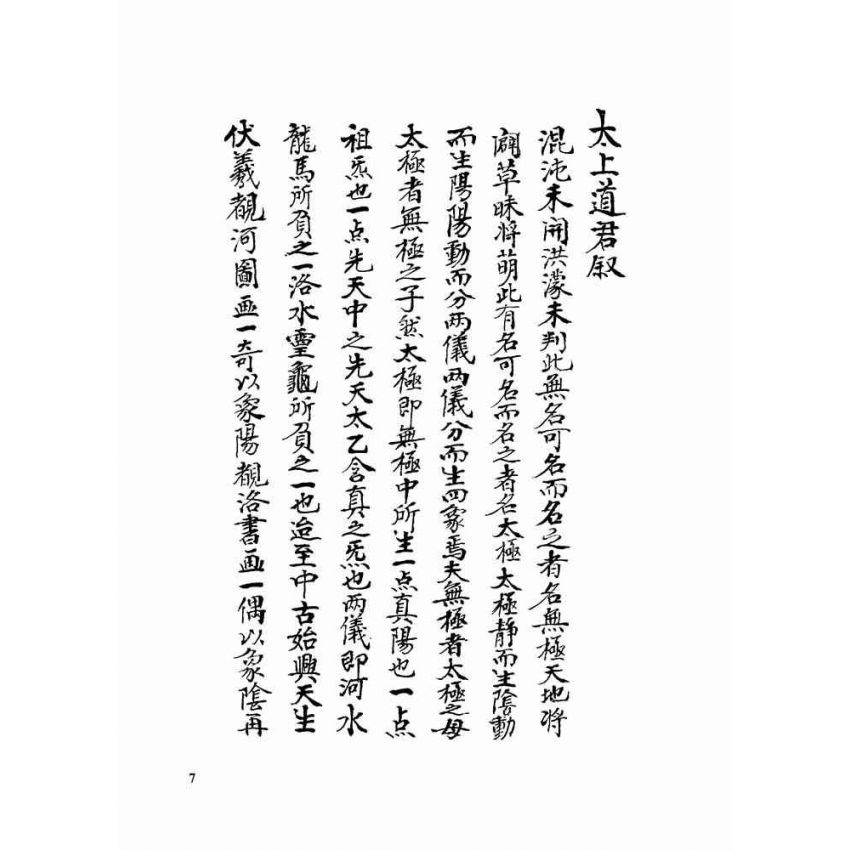 太上道君叙
混沌未開洪濛未判此無名可名而名之者名無極天地将
闢草昧将萌此有名可名而名之者名太極太極靜而生陰動
而生陽陽動而分两儀两儀分而生四象焉夫無極者太極之母
太極者無極之子然太極即無極中所生一点真陽也一点
祖炁也一点先天中之先天太乙含真之炁也两儀即河水
龍馬所負之一洛水靈龜所負之一也迨至中古始興天生
伏羲觀河圖画一奇以象陽觀洛書画一偶以象陰再
7